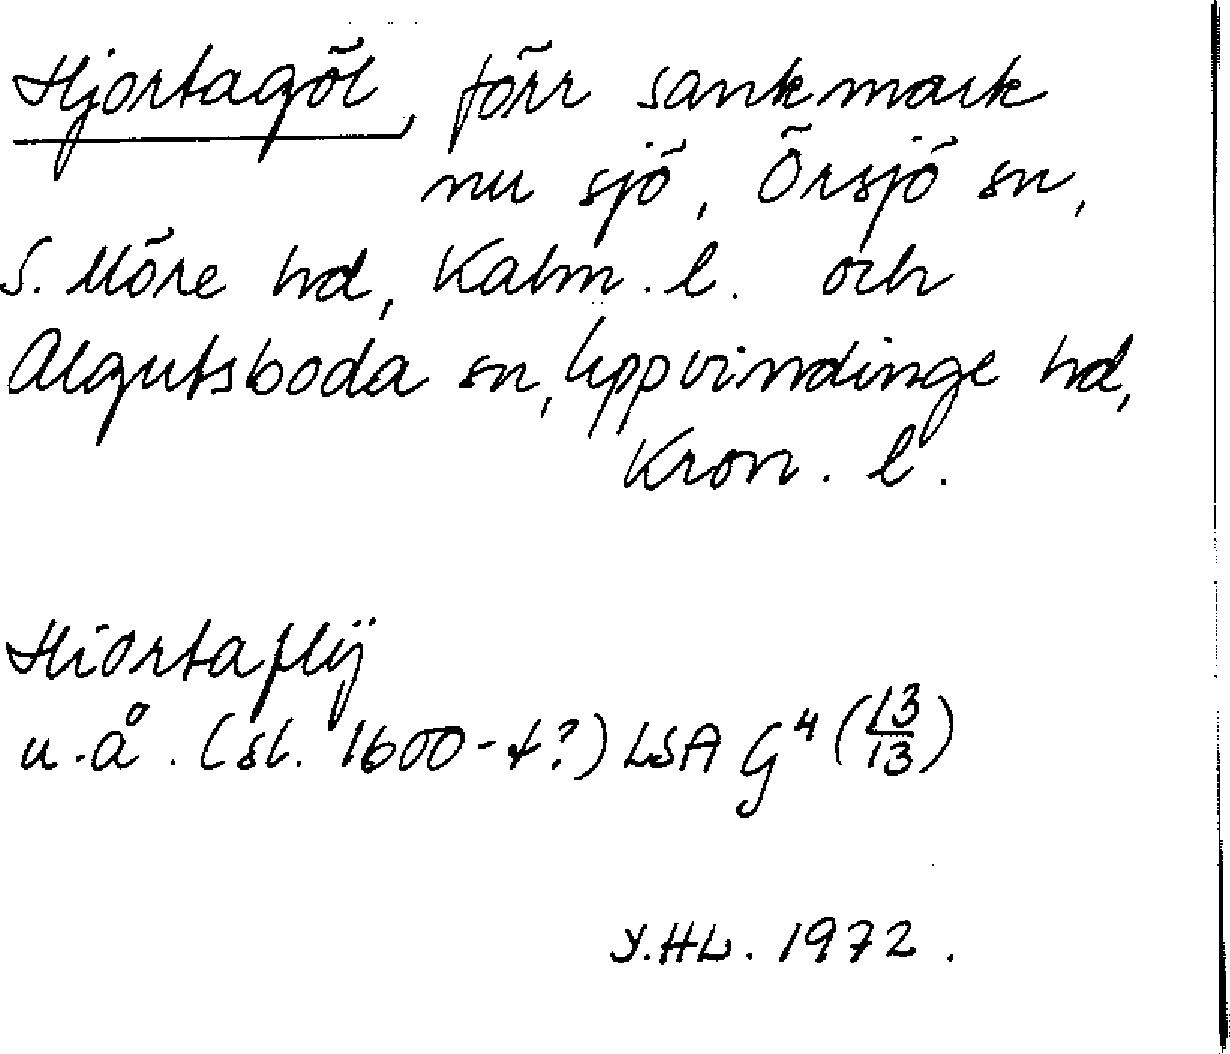 Hjortagöl, förr sankmark
nu sjö, Örsjö sn,
S. Möre hd, Kalm. l. och
Algutsboda sn, Uppvidinge hd,
Kron. l.
Hiortaflÿ
u.å. (sl. 1600-t?) LSA G⁴ (13/13)
Y.HL. 1972.